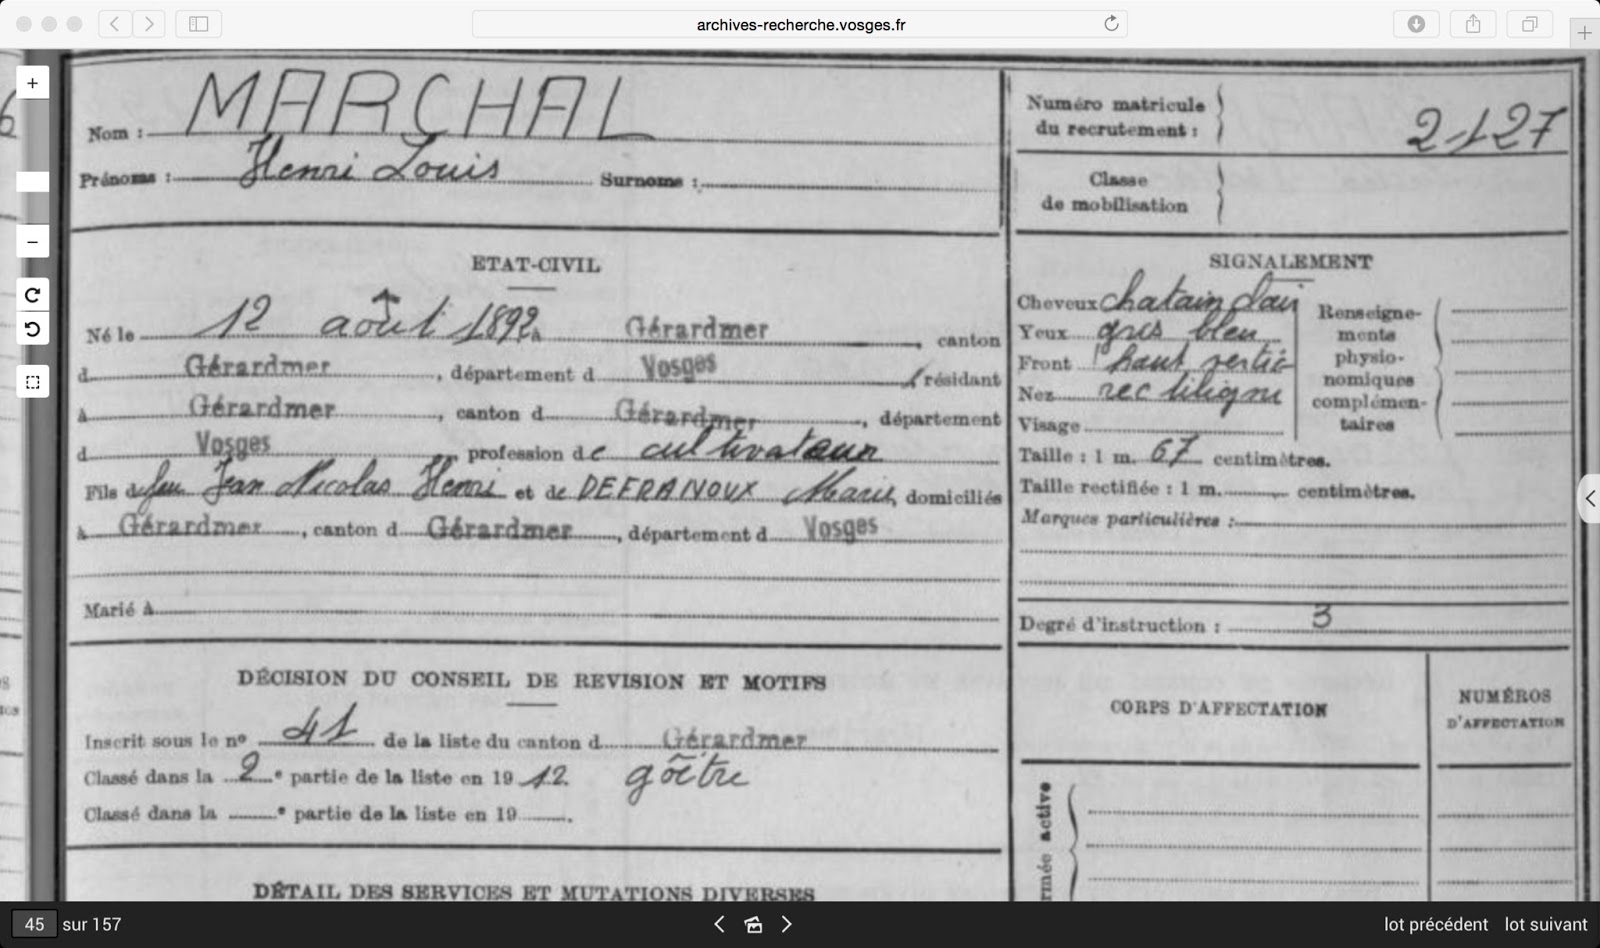 archives-recherche.vosges.fr
Nom : MARCHAL
Prénoms : Henri Louis Surnoms :
Numéro matricule
du recrutement : 2127
Classe
de mobilisation
ETAT-CIVIL
Né le 12 août 1892 à Gérardmer, canton
d Gérardmer, département d Vosges, résidant
à Gérardmer, canton d Gérardmer, département
d Vosges, profession de cultivateur
Fils de feu Jean Nicolas Henri et de DEFRANOUX Marie, domiciliés
à Gérardmer, canton d Gérardmer, département d Vosges
Marié à
SIGNALEMENT
Cheveux chatain clair
Yeux gris bleu
Front haut vertic
Nez rectiligne
Visage
Taille : 1 m. 67 centimètres.
Taille rectifiée : 1 m. centimètres.
Marques particulières :
Renseigne-
ments
physio-
nomiques
complémen-
taires
Degré d'instruction : 3
DÉCISION DU CONSEIL DE REVISION ET MOTIFS
Inscrit sous le nº 41 de la liste du canton d Gérardmer
Classé dans la 2e partie de la liste en 1912. goître
Classé dans la e partie de la liste en 19 .
CORPS D'AFFECTATION
NUMÉROS
D'AFFECTATION
rmée active
DÉTAIL DES SERVICES ET MUTATIONS DIVERSES
45 sur 157
lot précédent lot suivant